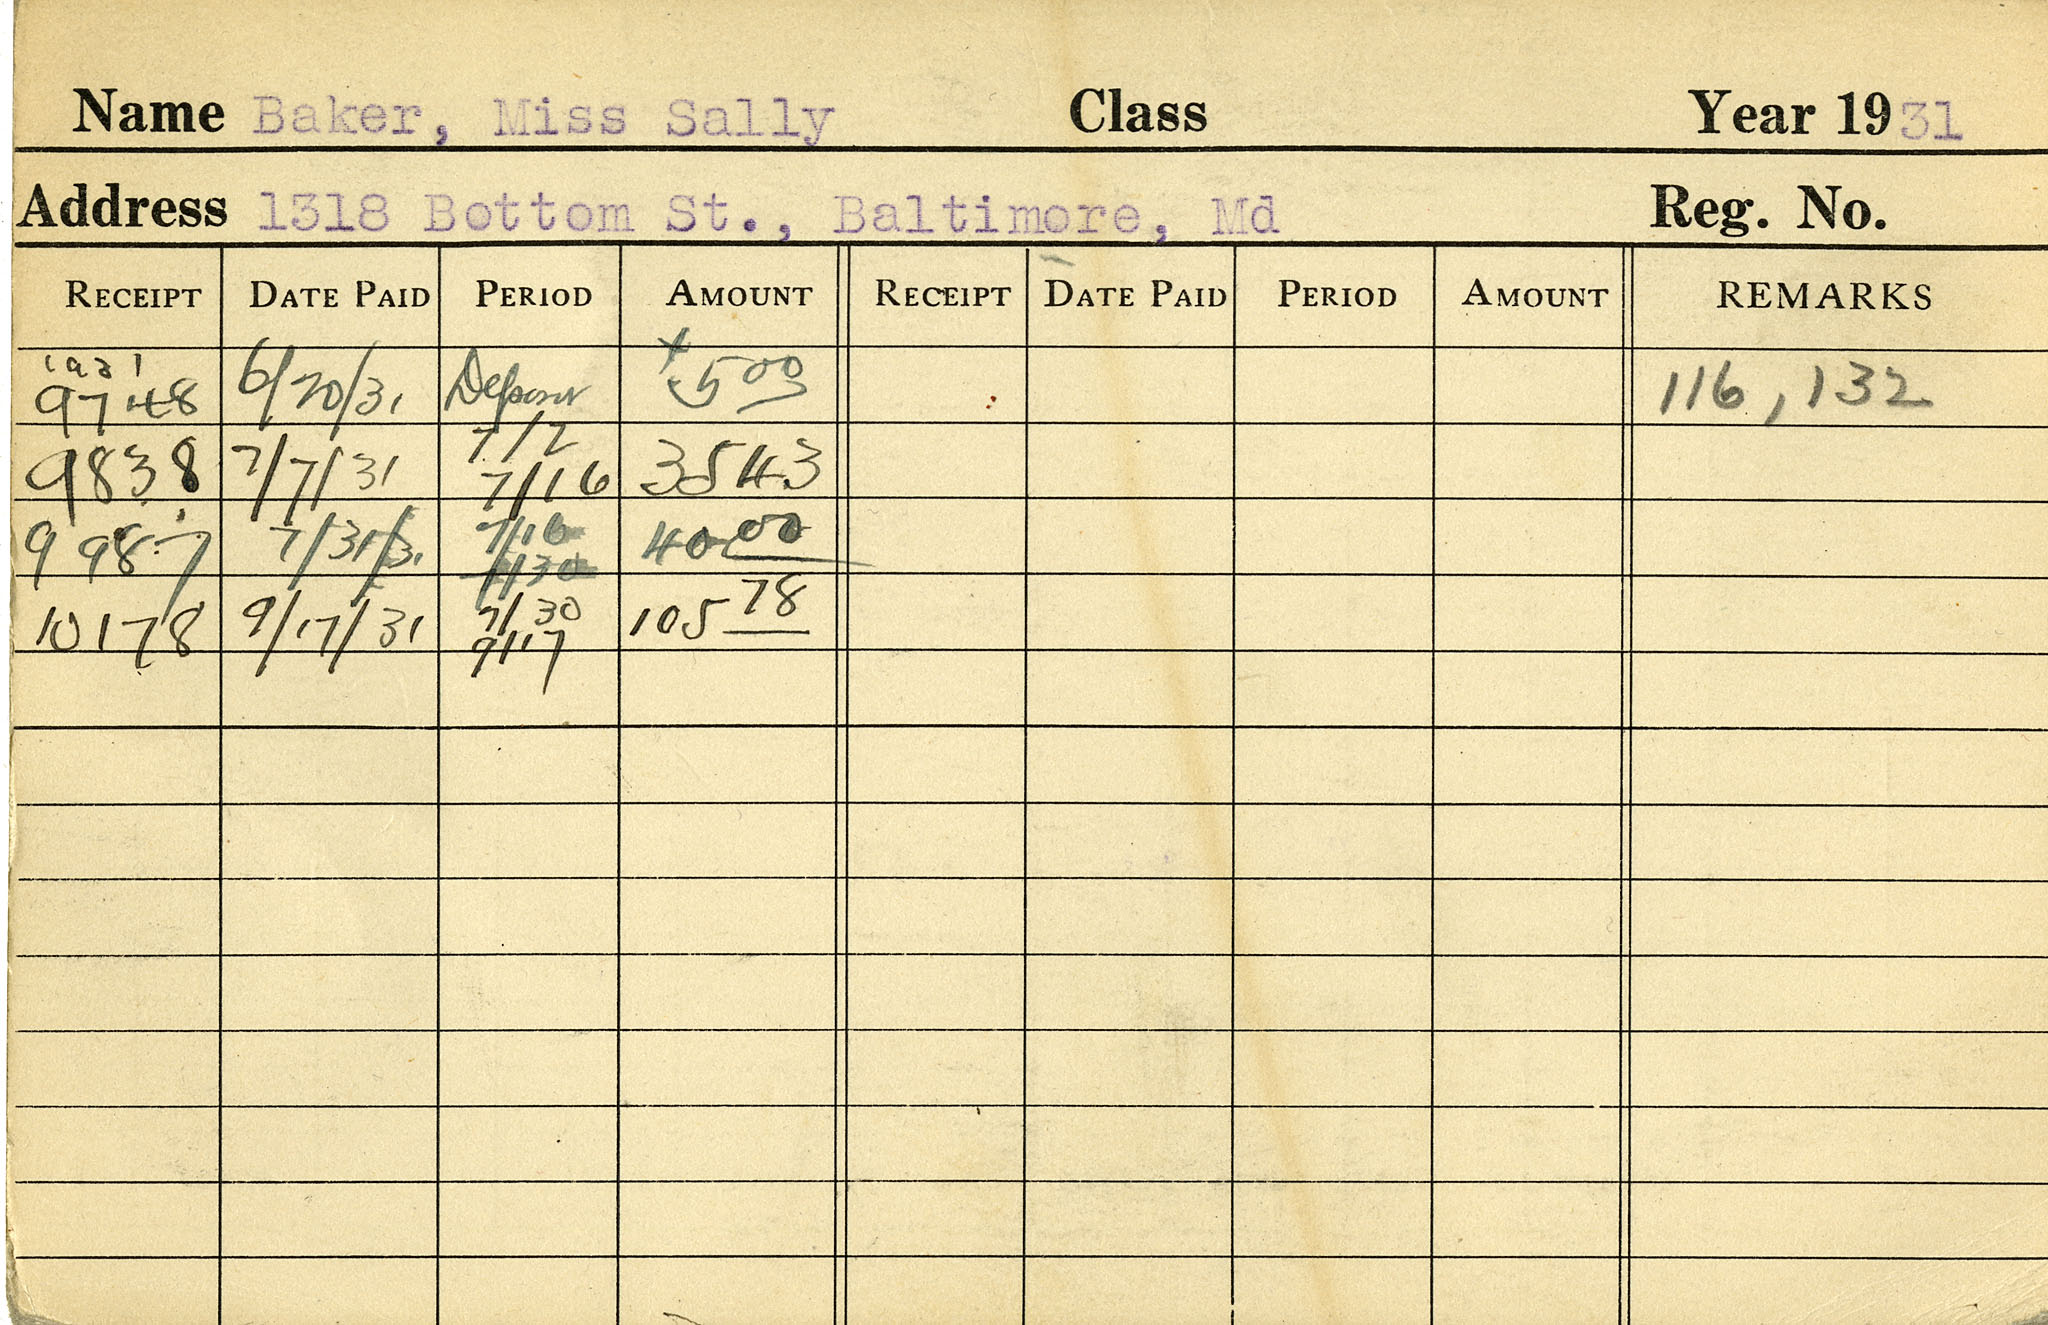 Name Baker, Miss Sally Class Year 1931
Address 1318 Bottom St., Baltimore, Md Reg. No.
RECEIPT DATE PAID PERIOD AMOUNT RECEIPT DATE PAID PERIOD AMOUNT REMARKS
1931
9748 6/20/31 Deposit 5 00 116, 132
9838 7/7/31 7/2 7/16 3543
9987 7/31/31 7/16 7/30 40 00
10178 9/17/31 7/30 9/17 105 78